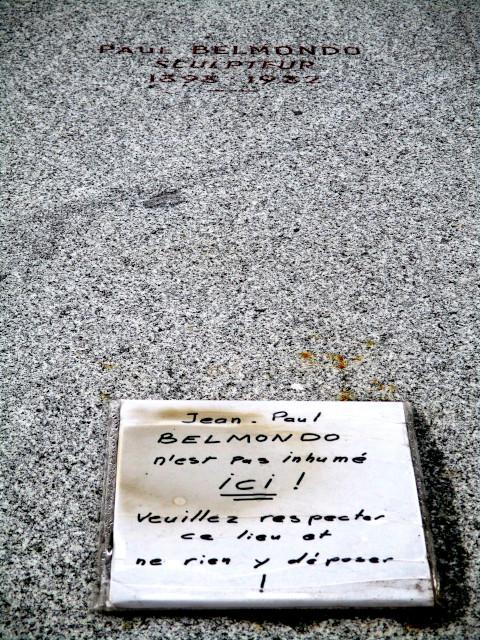 PAUL BELMONDO
SCULPTEUR
1898 1982
Jean-Paul
BELMONDO
n'est pas inhumé
ici !
Veuillez respecter
ce lieu et
ne rien y déposer
!